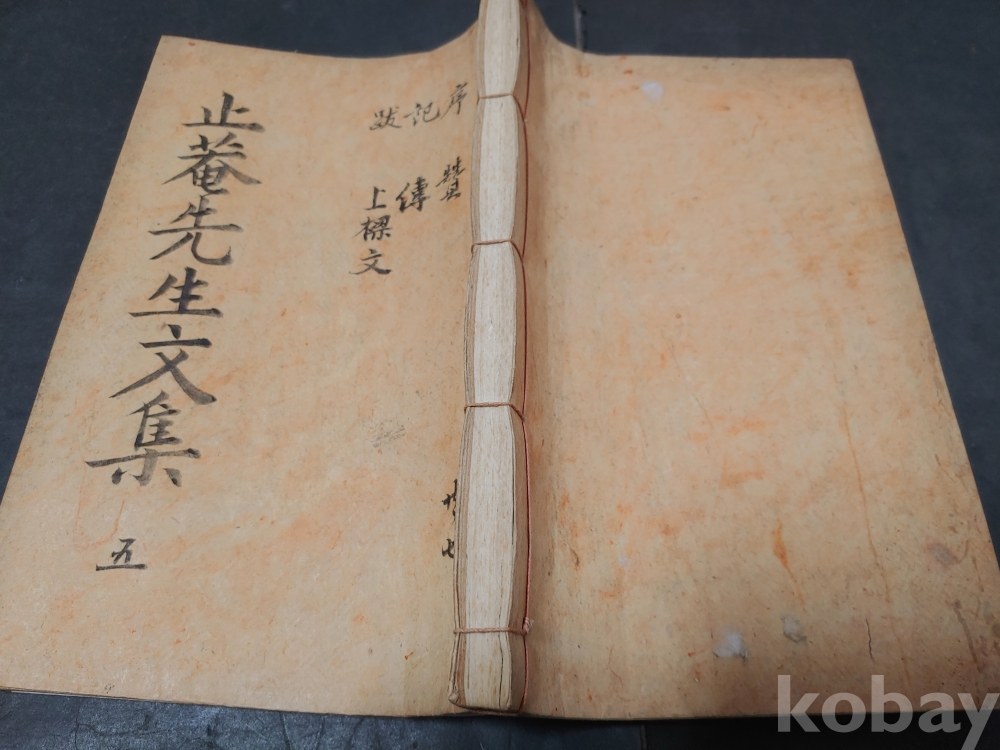 止菴先生文集
五
序 贊
記 傳
跋 上樑文
共七
kobay